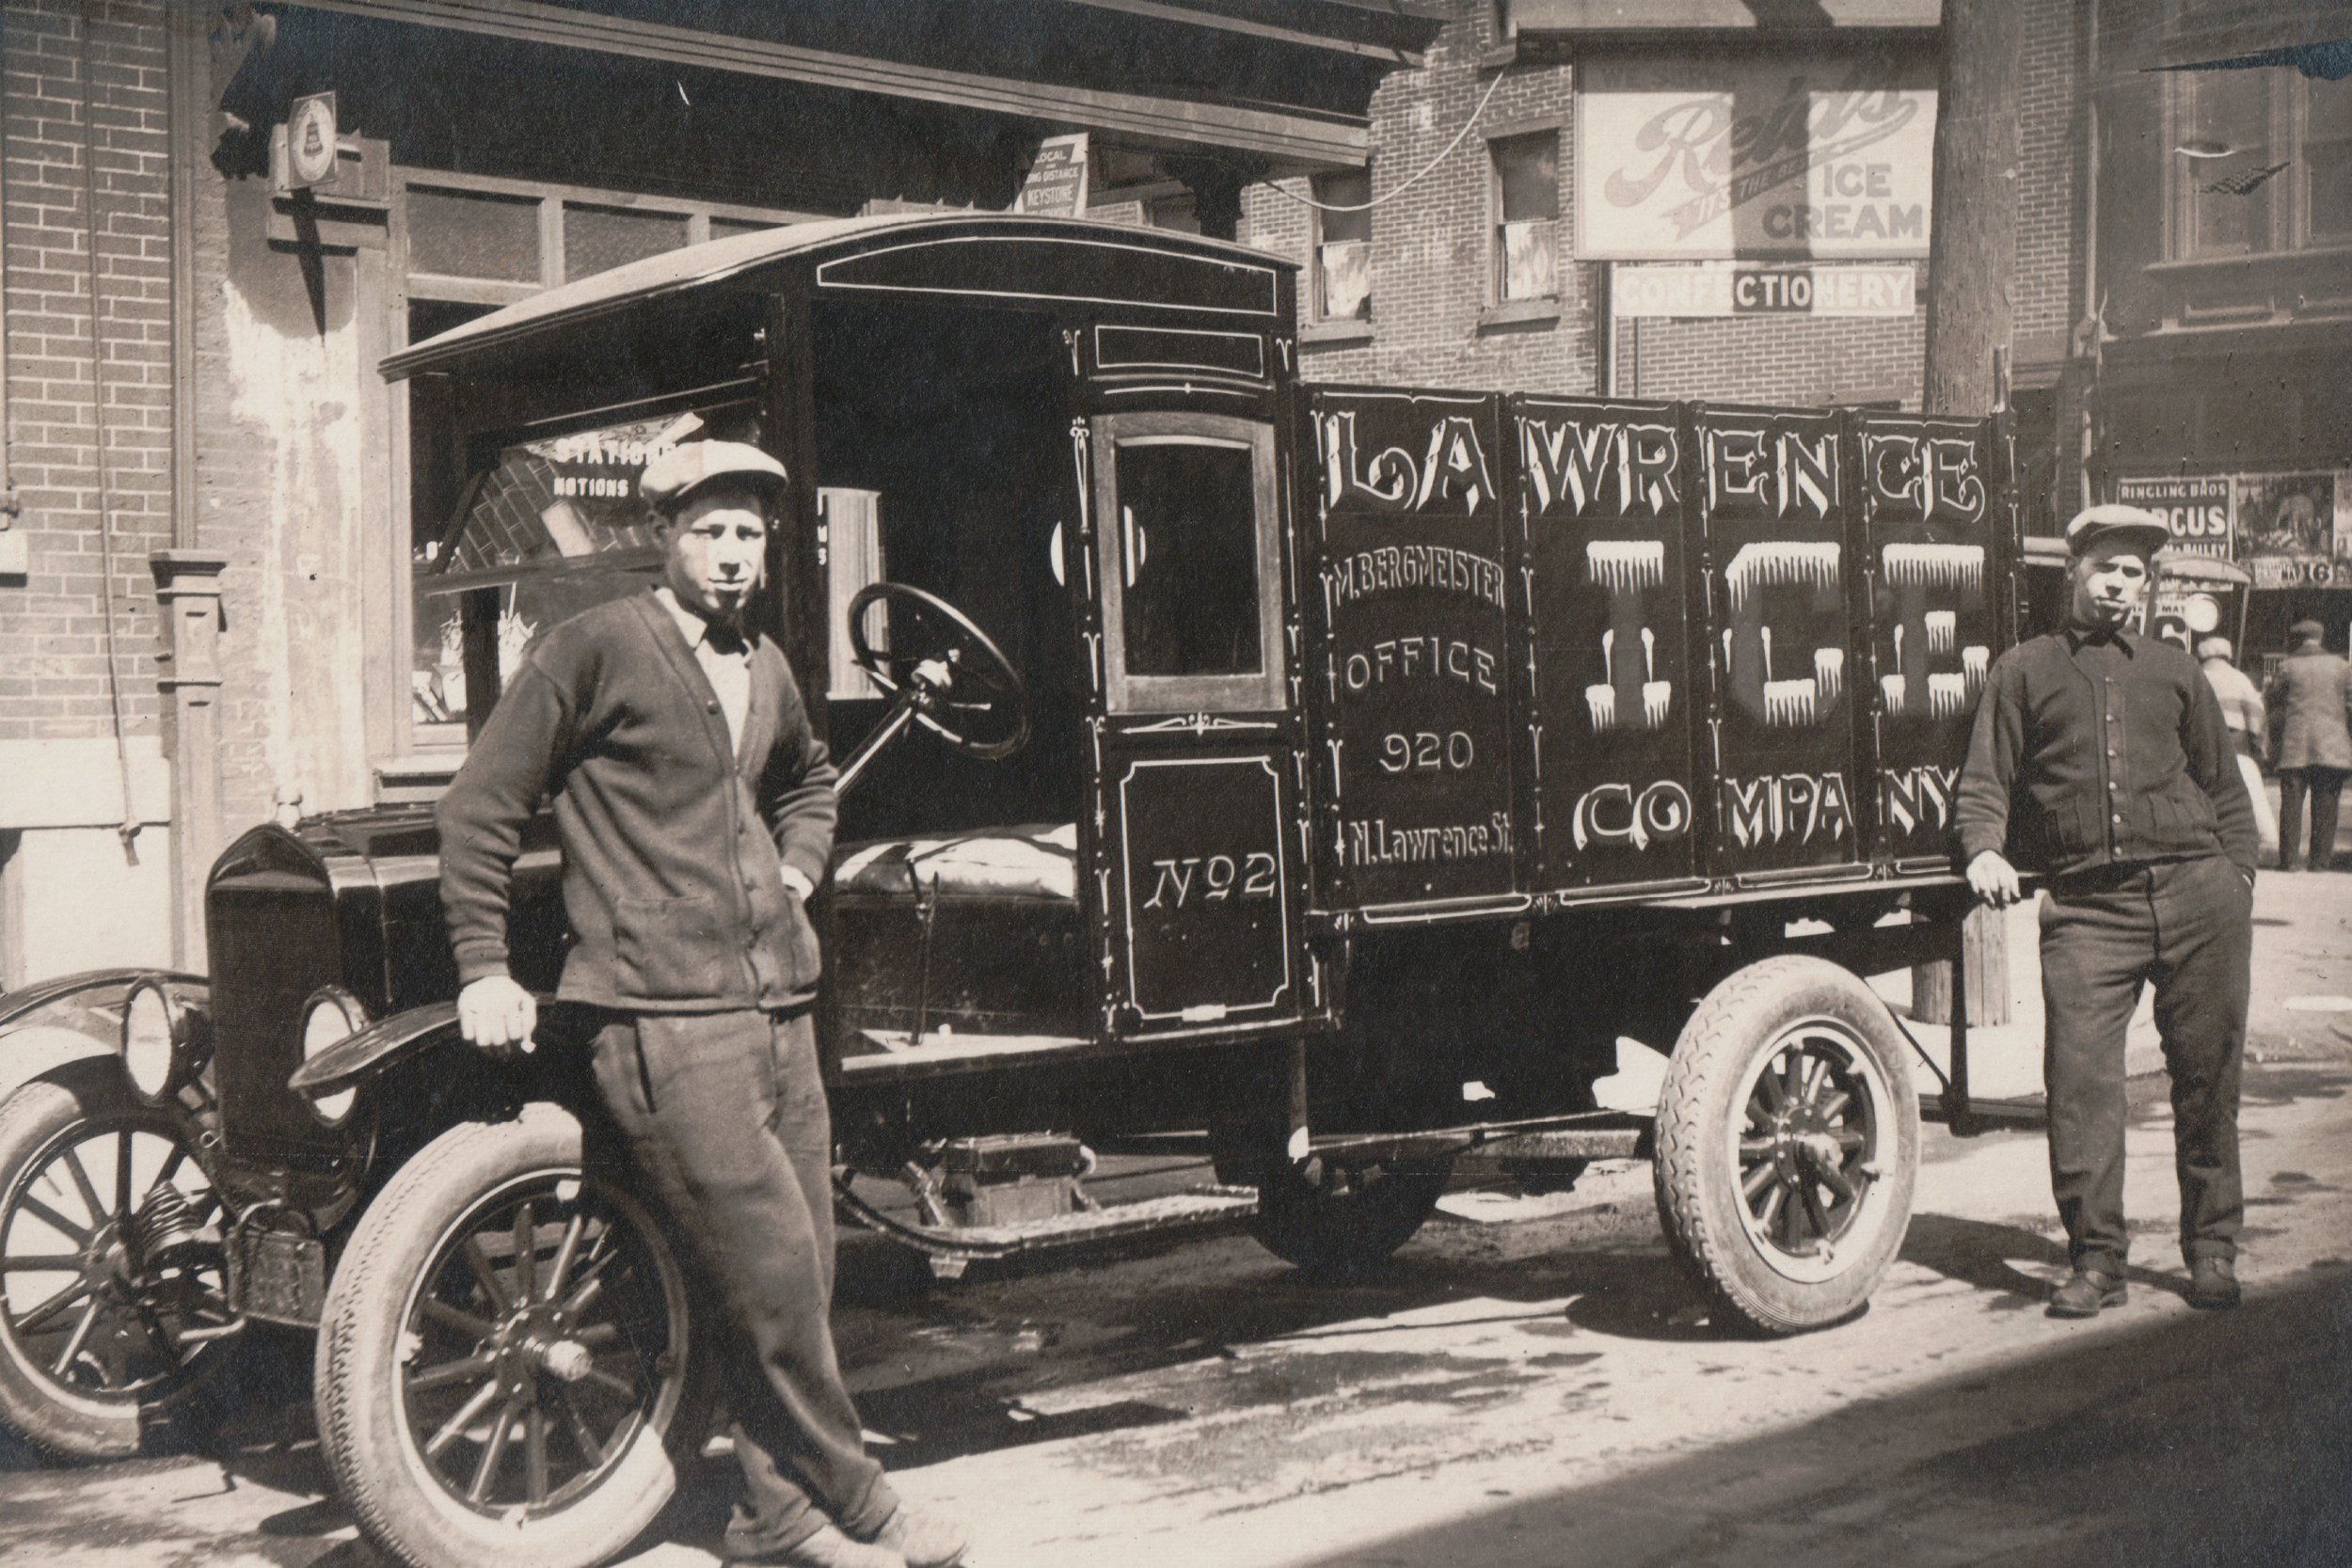 LOCAL
LONG DISTANCE
KEYSTONE
Reid's
IT'S THE BEST
ICE
CREAM
CONFECTIONERY
NOTIONS
LAWRENCE
ICE
COMPANY
M. BERGMEISTER
OFFICE
920
N. Lawrence St.
No 2
RINGLING BROS
CIRCUS
BAILEY
MAY
16